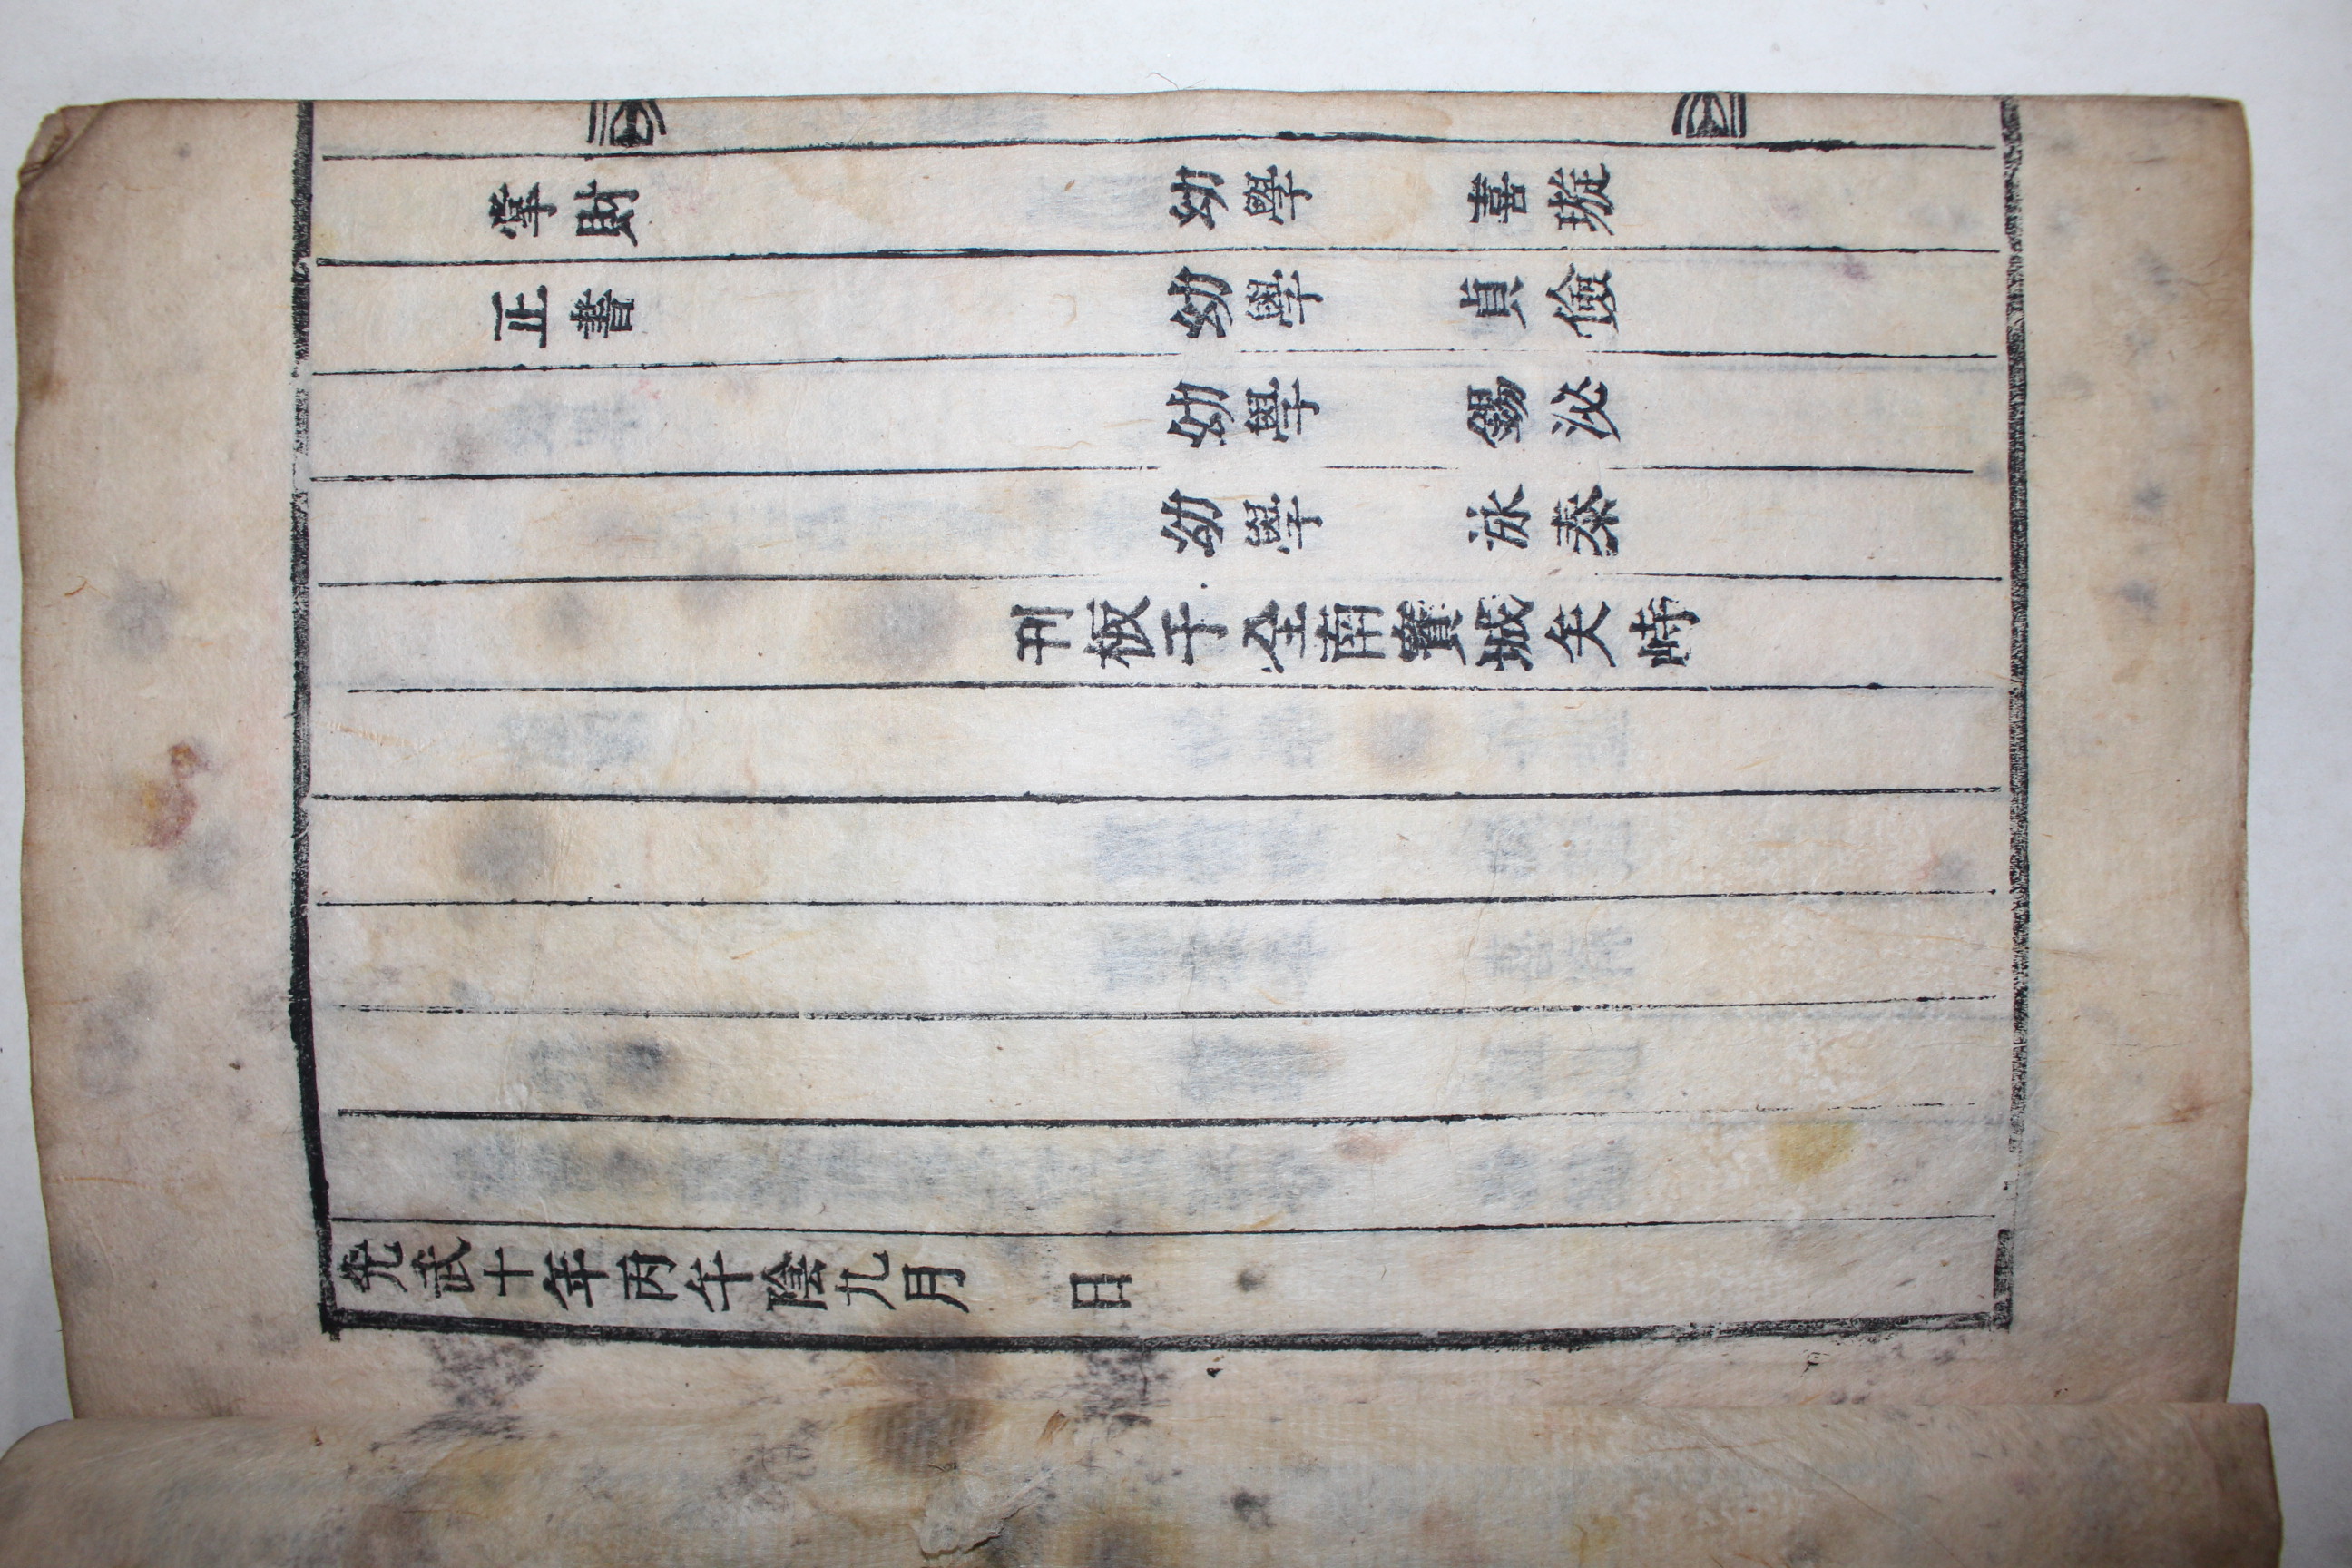 掌財 幼學 喜璇
正書 幼學 貞儉
幼學 錫泌
幼學 泳泰
刊板于全南寶城矢峙
光武十年丙午陰九月 日